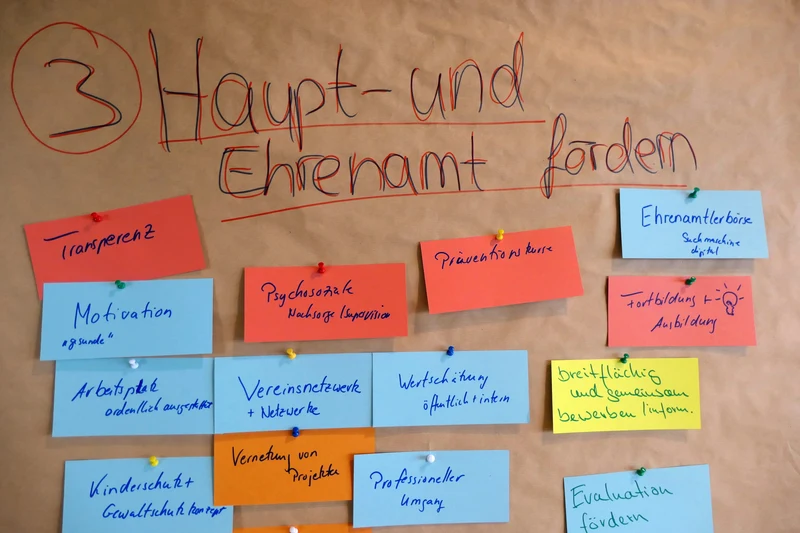 3 Haupt- und
Ehrenamt fördern
Transparenz
Präventionskurse
Ehrenamtlerbörse
Suchmaschine
digital
Psychosoziale
Nachsorge/Supervision
Motivation
"gesunde"
Fortbildung +
Ausbildung
Arbeitsplätze
ordentlich ausgestattet
Vereinsnetzwerke
+ Netzwerke
Wertschätzung
öffentlich + intern
breitflächig
und gemeinsam
bewerben/inform.
Vernetzung von
Projekten
Kinderschutz +
Gewaltschutzkonzept
Professioneller
Umgang
Evaluation
fördern